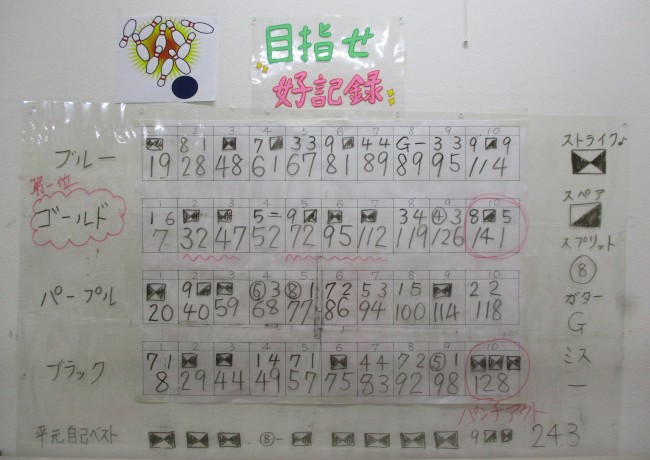 目指せ
好記録
1 2 3 4 5 6 7 8 9 10
ブルー 8 1 7 3 3 9 4 4 G - 3 3 9 9
19 28 48 61 67 81 89 89 95 114
第一位
ゴールド 1 6 5 - 9 3 4 ④ 3 8 5
7 32 47 52 72 95 112 119 126 141
パープル 9 ⑥ 3 ⑧ 1 7 2 5 3 1 5 2 2
20 40 59 68 77 86 94 100 114 118
ブラック 7 1 1 4 7 1 4 4 7 2 ⑤ 1
8 29 44 49 57 75 83 92 98 128
パンチアウト
平元自己ベスト ⑧ - 9 243
ストライク♪
スペア
スプリット
⑧
ガター
G
ミス
-